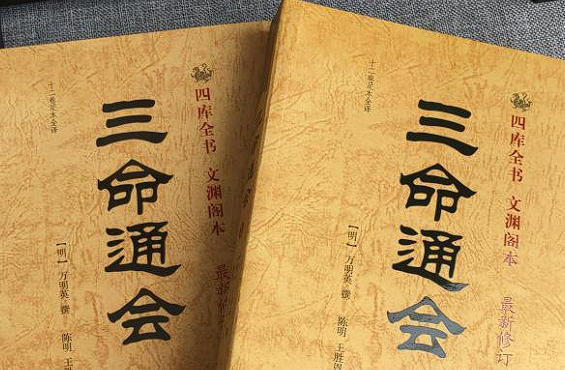 十二卷足本全译
四库全书 文渊阁本
三命通会
最新修
【明】万明英 撰
陈明 王胜
十二卷足本全译
四库全书 文渊阁本
三命通会
最新修订
【明】万明英 撰
陈明 王胜恩